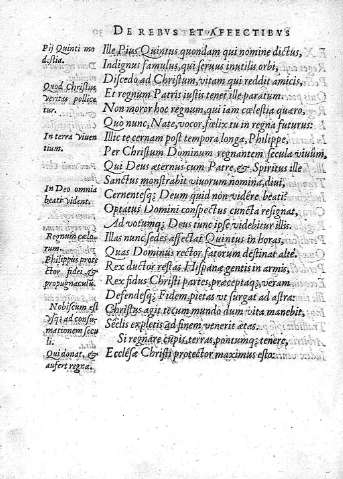 DE REBVS ET AFFECTIBVS
Pij Quinti modestia.
Ille Pius Quintus quondam qui nomine dictus,
Indignus famulus, qui seruus inutilis orbi,
Discedo ad Christum, vitam qui reddit amicis,
Quod Christus veritus pollicetur.
Et regnum Patris iustis tenet ille paratum.
Non moror hoc regnum, qui iam cælestia quæro,
Quo nunc, Nate, vocor, fœlix tu in regna futurus:
In terra viuentium.
Illic te cernam post tempora longa, Philippe,
Per Christum Dominum regnantem secula viuum,
Qui Deus æternus cum Patre, & Spiritus ille
Sanctus monstrabit viuorum nomina, diui,
In Deo omnia beati vident.
Cernentesq; Deum quid non vidêre beati?
Optatus Domini conspectus cuncta resignat,
Ad votumq; Deus tunc ipse videbitur illis.
Regnum cælorum.
Illas nunc sedes affectat Quintus in horas,
Quas Dominus rector, fatorum destinat alte.
Philippus protector fidei & propugnaculum.
Rex ductor restas Hispanæ gentis in armis,
Rex fidus Christi partes, præceptaq; veram
Defendesq; Fidem, pietas vt surgat ad astra:
Nobiscum est vsq; ad consummationem seculi.
Christus agit tecum mundo dum vita manebit,
Seclis expletis ad finem venerit ætas.
Qui donat, & aufert regna.
Si regnare cupis, terras, pontumq; tenere,
Ecclesæ Christi protector maximus esto: